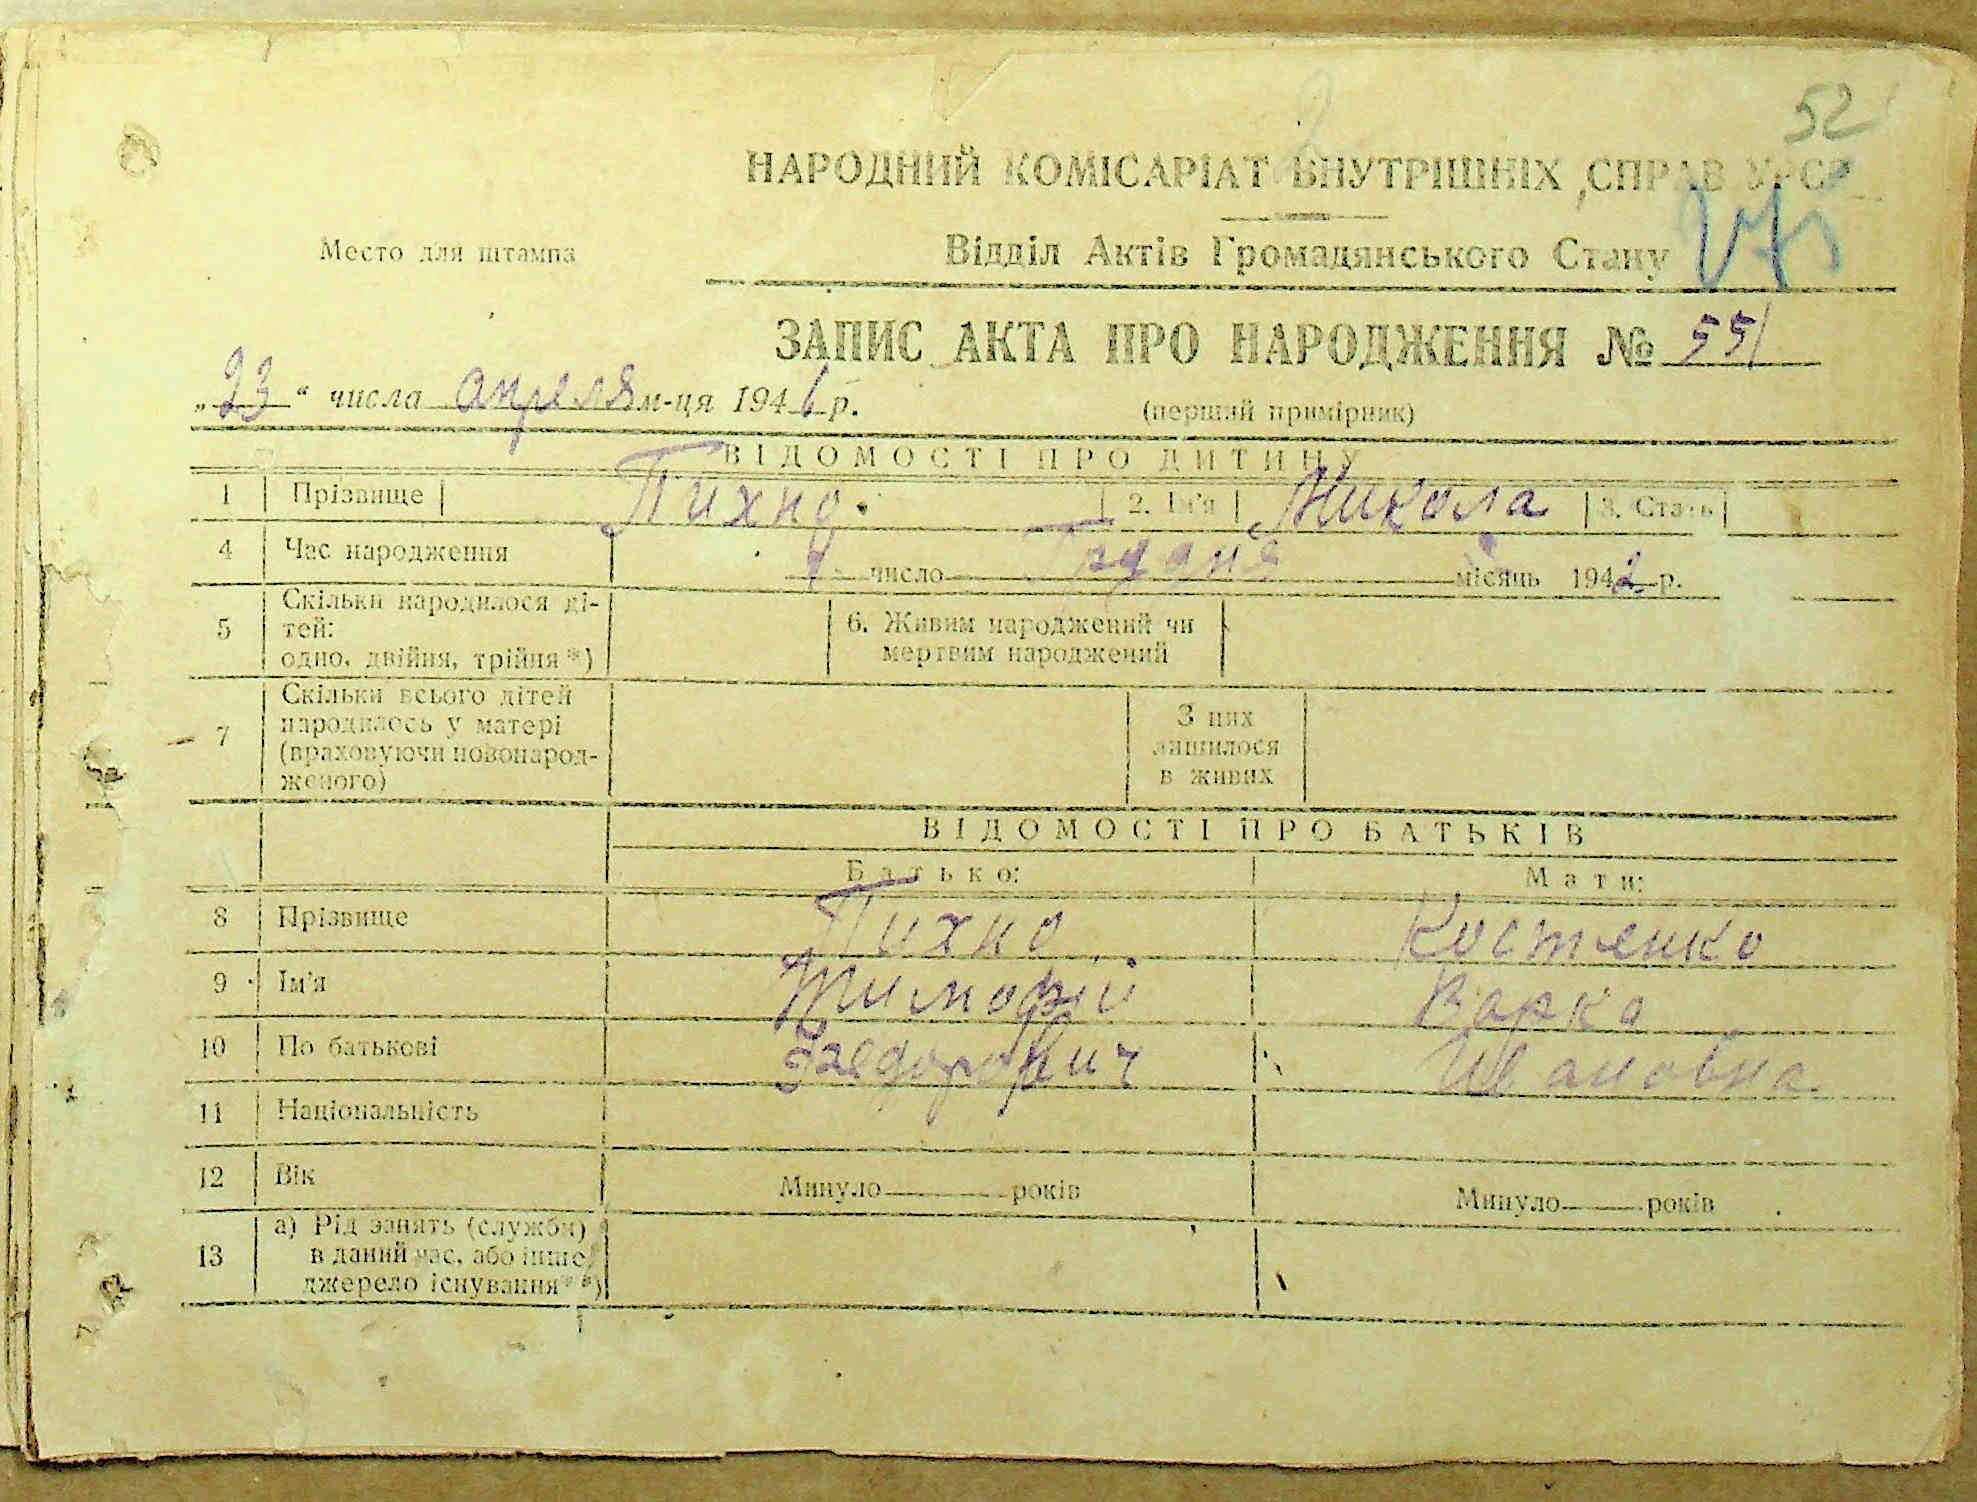 52
НАРОДНИЙ КОМІСАРІАТ ВНУТРІШНІХ СПРАВ УРСР
Место для штампа
Відділ Актів Громадянського Стану
ЗАПИС АКТА ПРО НАРОДЖЕННЯ № 551
„23“ числа апреля м-ця 1946 р.
(перший примірник)
ВІДОМОСТІ ПРО ДИТИНУ
1 Прізвище Пихно. 2. Ім'я Микола 3. Стать
4 Час народження число місяць 1942 р.
5 Скільки народилося ді-
тей:
одно, двійня, трійня *)
6. Живим народжений чи
мертвим народжений
7 Скільки всього дітей
народилось у матері
(враховуючи новонарод-
женого)
З них
лишилося
в живих
ВІДОМОСТІ ПРО БАТЬКІВ
Батько: Мати:
8 Прізвище Пихно Костенко
9 Ім'я Тимофій Варка
10 По батькові Федорович Ивановна
11 Національність
12 Вік Минуло років Минуло років
13 а) Рід занять (служби)
в даний час, або інше
джерело існування **)